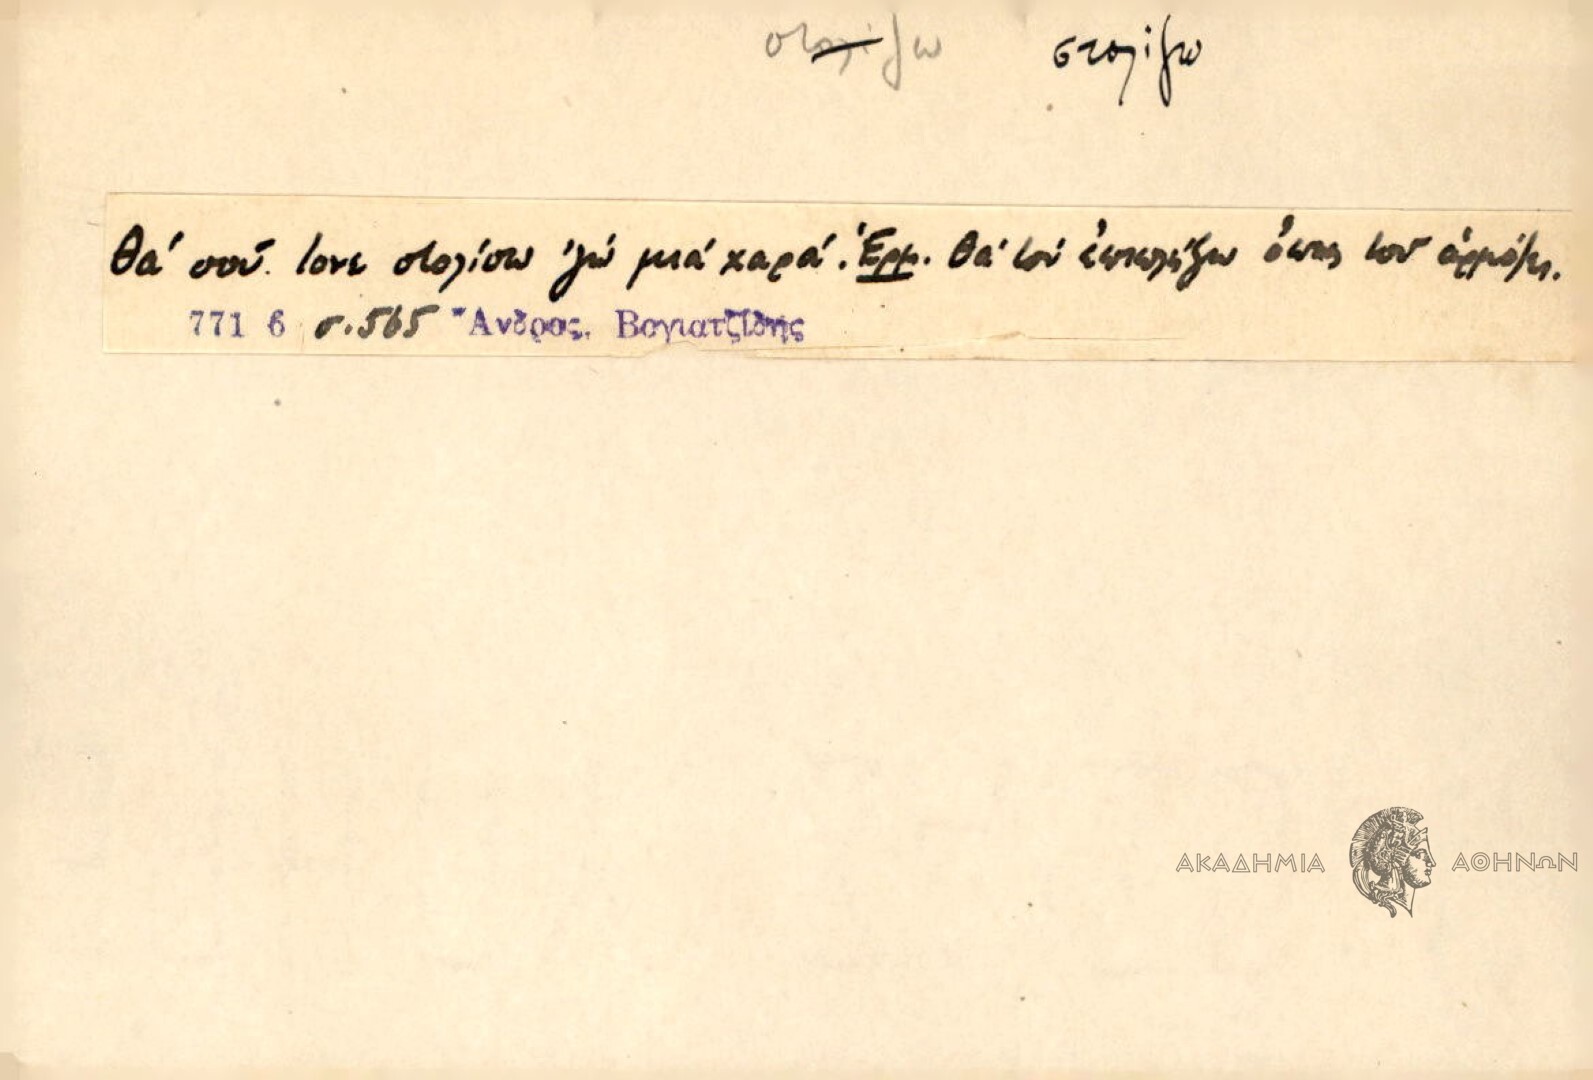 στολίζω στολίζω
Θά σοῦ τονε στολίσω 'γώ μιά χαρά. Ἑρμ. θά τόν ἐπιπλήξω ὅπως τοῦ ἁρμόζει.
771 6 σ. 565 Ἄνδρος. Βογιατζίδης
ΑΚΑΔΗΜΙΑ ΑΘΗΝΩΝ